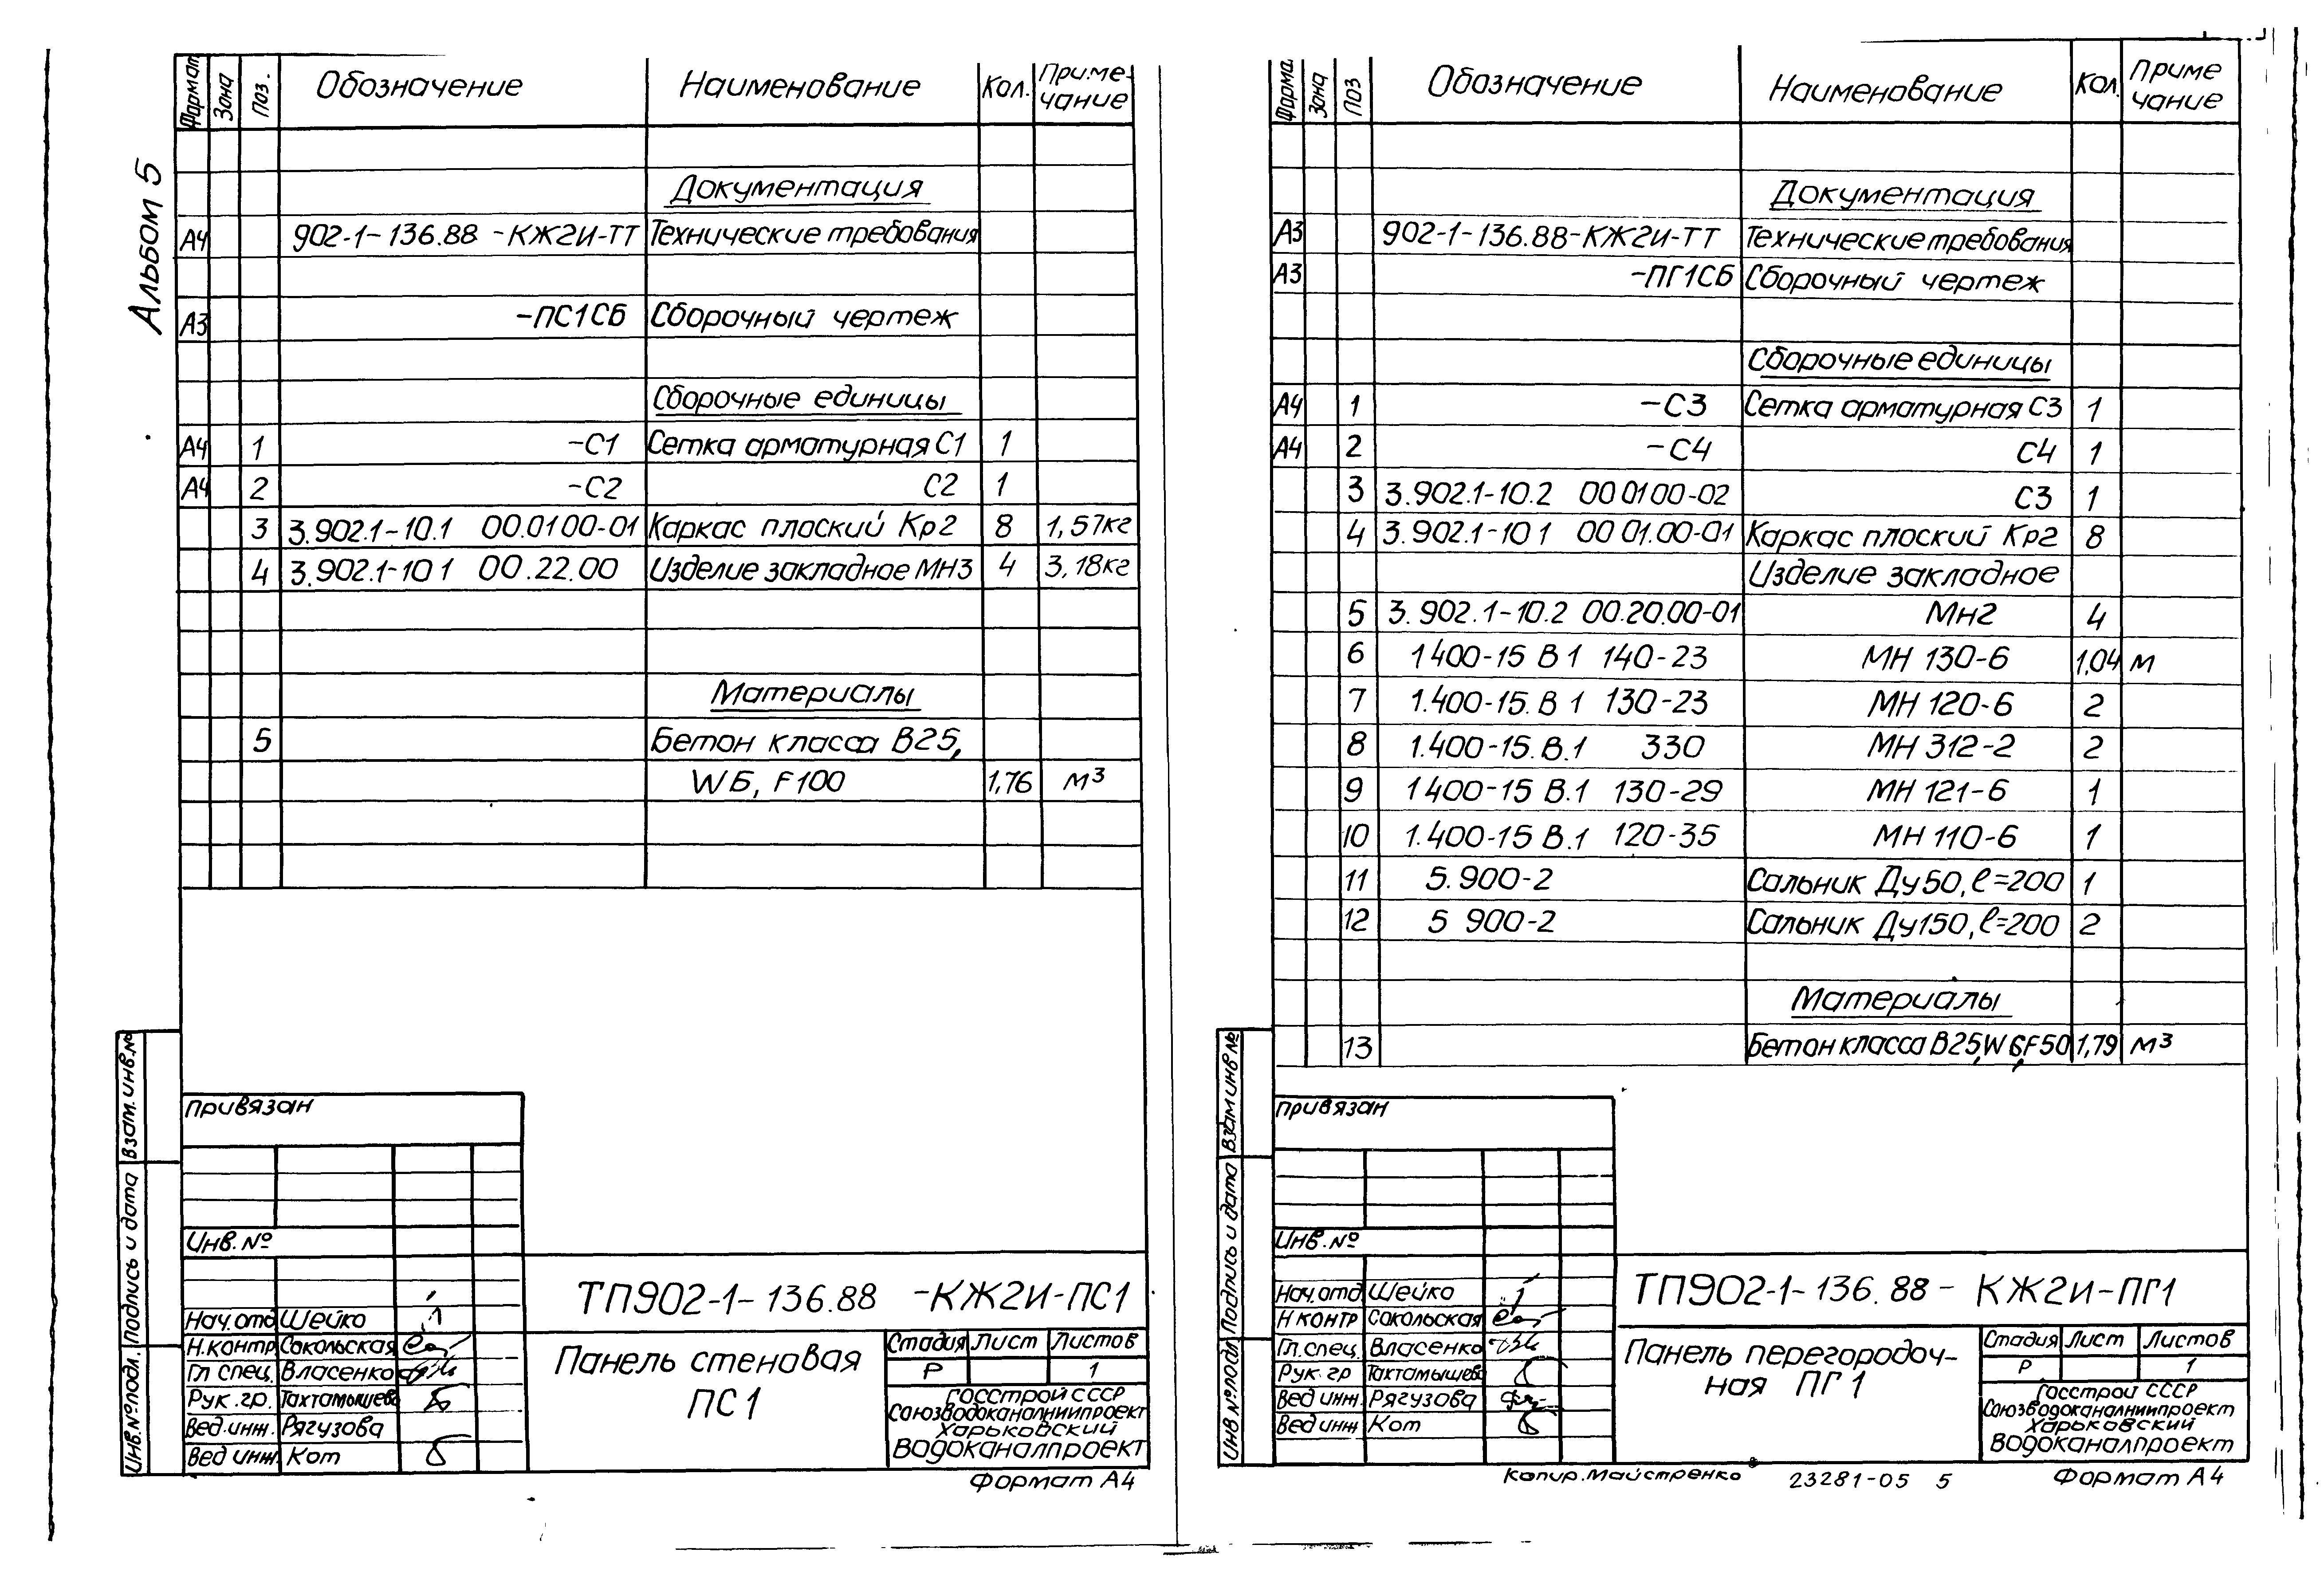 Альбом 5
Формат Зона Поз. Обозначение Наименование Кол. Приме-
чание
Документация
А4 902-1-136.88 -КЖ2И-ТТ Технические требования
А3 -ПС1СБ Сборочный чертеж
Сборочные единицы
А4 1 -С1 Сетка арматурная С1 1
А4 2 -С2 С2 1
3 3.902.1-10.1 00.0100-01 Каркас плоский Кр2 8 1,57кг
4 3.902.1-10 1 00.22.00 Изделие закладное МН3 4 3,18кг
Материалы
5 Бетон класса В25,
W6, F100 1,76 м³
Привязан
Инв. №
Взам. инв.№
Подпись и дата
Инв.№подл.
ТП902-1-136.88 -КЖ2И-ПС1
Нач.отд Шейко
Н.контр Сокольская
Гл спец. Власенко
Рук.гр. Тахтамышева
Вед.инж. Рягузова
Вед инж. Кот
Панель стеновая
ПС 1
Стадия Лист Листов
Р 1
Госстрой СССР
Союзводоканалниипроект
Харьковский
Водоканалпроект
Формат А4
Форма. Зона Поз Обозначение Наименование Кол. Приме
чание
Документация
А3 902-1-136.88-КЖ2И-ТТ Технические требования
А3 -ПГ1СБ Сборочный чертеж
Сборочные единицы
А4 1 -С3 Сетка арматурная С3 1
А4 2 -С4 С4 1
3 3.902.1-10.2 00 01 00-02 С3 1
4 3.902.1-10 1 00 01.00-01 Каркас плоский Кр2 8
Изделие закладное
5 3.902.1-10.2 00.20.00-01 Мн2 4
6 1 400-15 В 1 140-23 МН 130-6 1,04 м
7 1.400-15. В 1 130-23 МН 120-6 2
8 1.400-15. В.1 330 МН 312-2 2
9 1 400-15 В.1 130-29 МН 121-6 1
10 1.400-15 В.1 120-35 МН 110-6 1
11 5.900-2 Сальник Ду50, ℓ=200 1
12 5 900-2 Сальник Ду150, ℓ=200 2
Материалы
13 Бетон класса В25,W 6,F50 1,79 м³
Привязан
Инв. №
Взам инв №
Подпись и дата
Инв №подл
ТП902-1-136.88 - КЖ2И-ПГ1
Нач.отд. Шейко
Н контр Сокольская
Гл.спец. Власенко
Рук.гр Тахтамышева
Вед инж. Рягузова
Вед инж Кот
Панель перегородоч-
ная ПГ1
Стадия Лист Листов
Р 1
Госстрой СССР
Союзводоканалниипроект
Харьковский
Водоканалпроект
Копир. Майстренко 23281-05 5 Формат А4